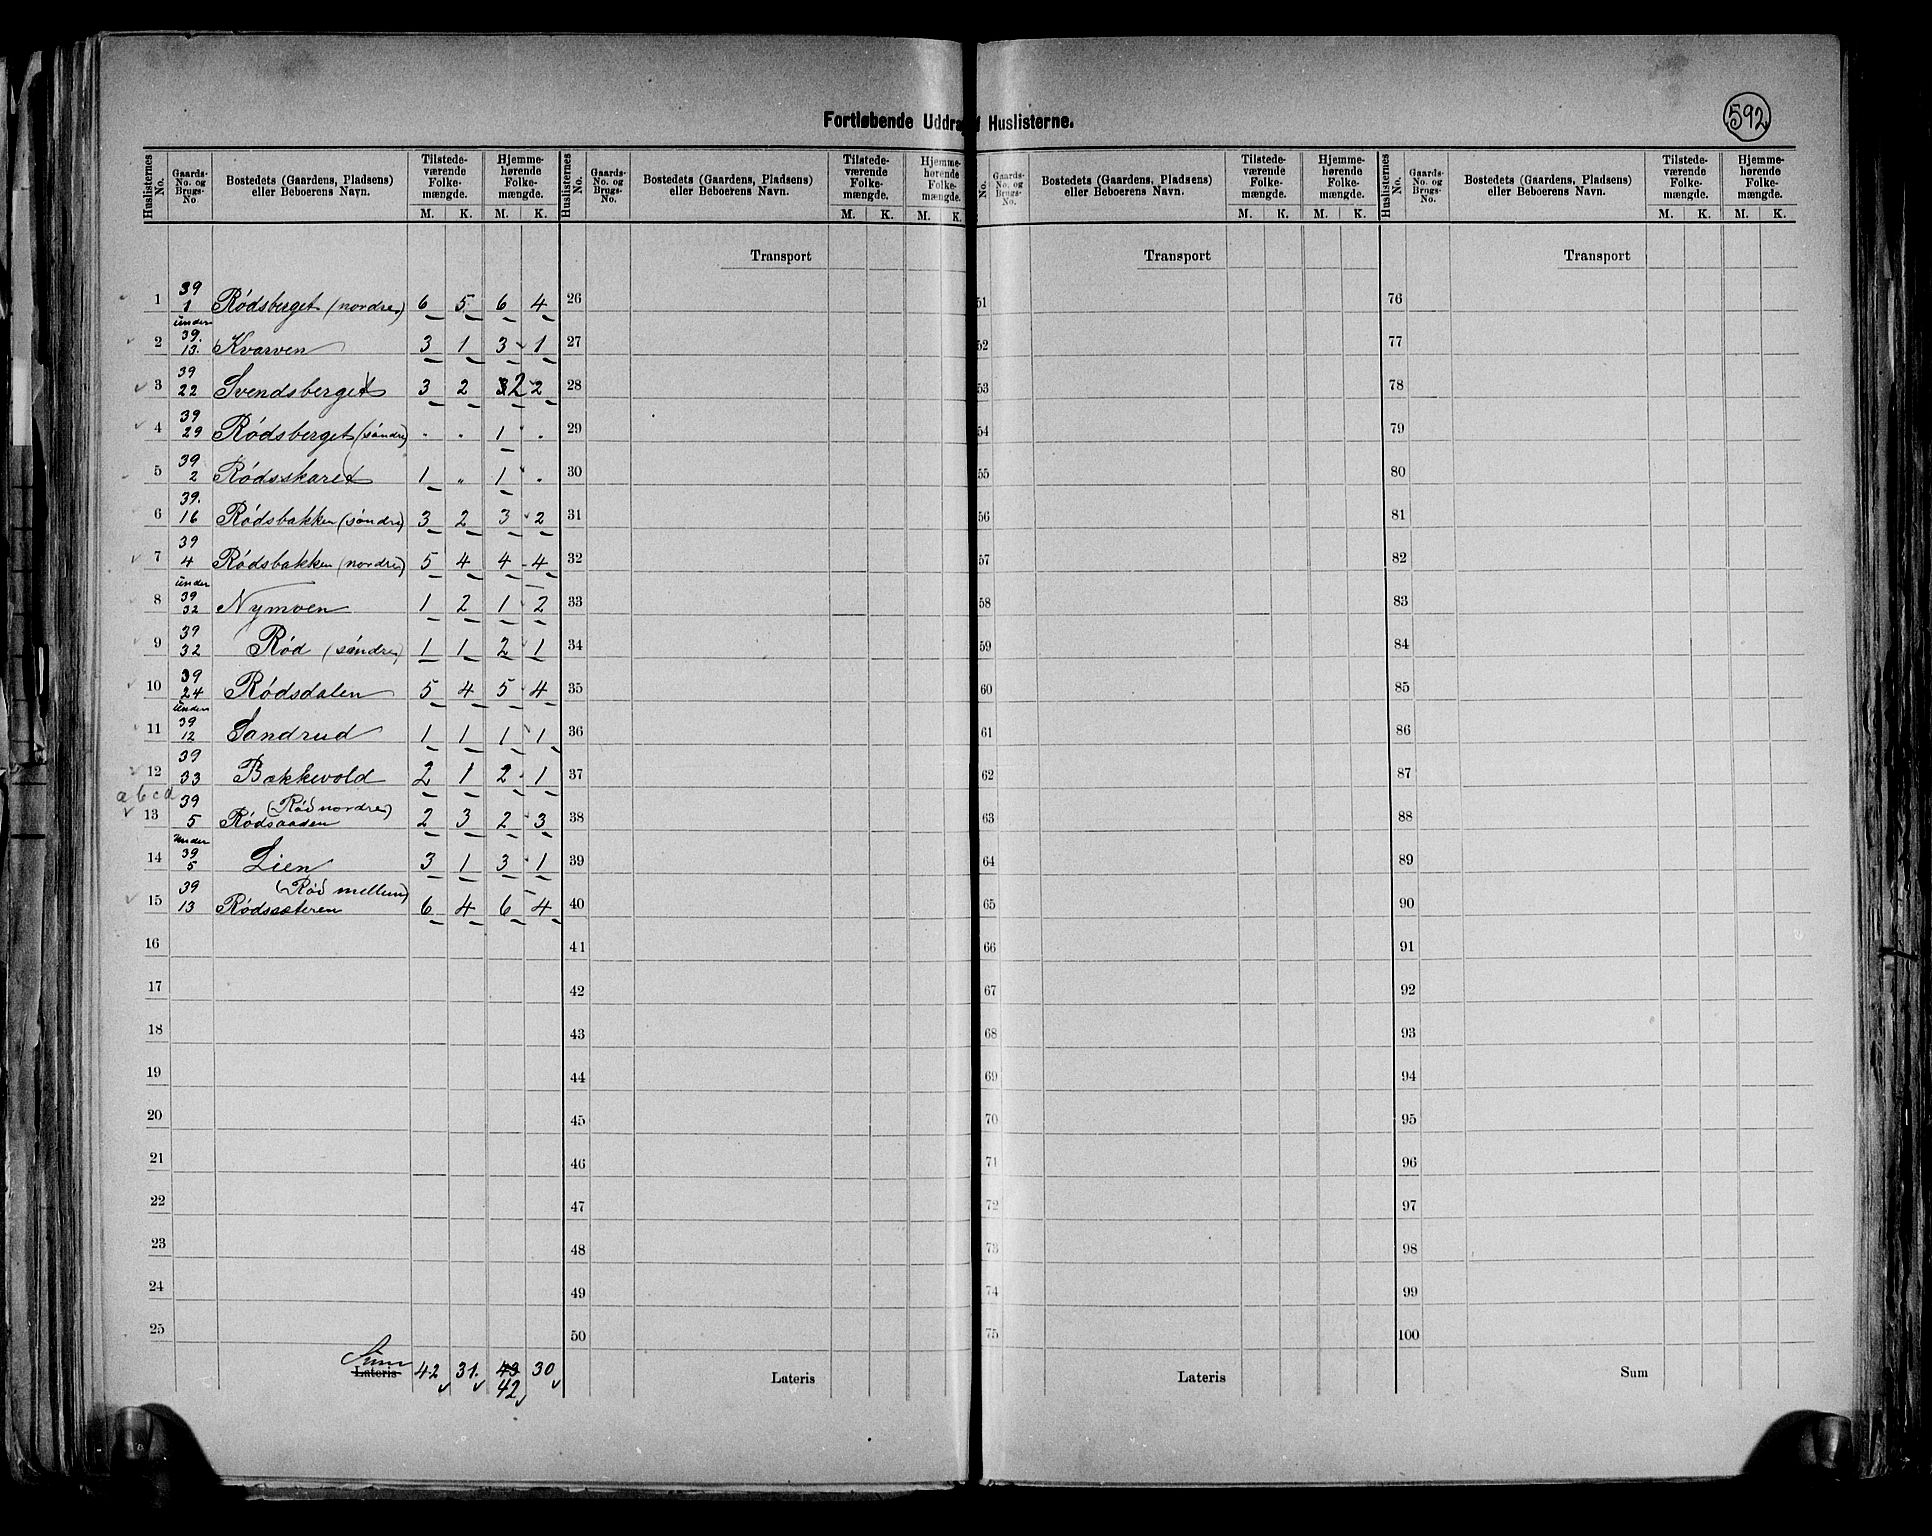 Fortløbende Uddrag af Huslisterne.
592
Huslisternes No. Gaards-No. og Brugs-No Bostedets (Gaardens, Pladsens) eller Beboerens Navn. Tilstedeværende Folkemængde. M. K. Hjemmehørende Folkemængde. M. K.
Huslisternes No. Gaards-No. og Brugs-No. Bostedets (Gaardens, Pladsens) eller Beboerens Navn. Tilstedeværende Folkemængde. M. K. Hjemmehørende Folkemængde. M. K.
No. Gaards-No. og Brugs-No. Bostedets (Gaardens, Pladsens) eller Beboerens Navn. Tilstedeværende Folkemængde. M. K. Hjemmehørende Folkemængde. M. K.
Huslisternes No. Gaards-No. og Brugs-No. Bostedets (Gaardens, Pladsens) eller Beboerens Navn. Tilstedeværende Folkemængde. M. K. Hjemmehørende Folkemængde. M. K.
1 39 1 Rødsberget (nordre) 6 5 6 4
2 under 39. 13. Kvarven 3 1 3 1
3 39 22 Svendsberget 3 2 3 2 2
4 39 29 Rødsberget (søndre) " " 1 "
5 39 2 Rødsskaret 1 " 1 "
6 39. 16 Rødsbakken (søndre) 3 2 3 2
7 39 4 Rødsbakken (nordre) 5 4 4 4
8 under 39 32 Nymoen 1 2 1 2
9 39 32 Rød (søndre) 1 1 2 1
10 39 24 Rødsdalen 5 4 5 4
11 under 39 12 Sandrud 1 1 1 1
12 39 33 Bakkevold 2 1 2 1
abcd
13 39 5 (Rød nordre) Rødsaaden 2 3 2 3
14 under 39 5 Lien 3 1 3 1
15 39 13 (Rød mellem) Rødsæteren 6 4 6 4
16
17
18
19
20
21
22
23
24
25
Sum
Lateris 42 31. 43 30
42
Transport
26
27
28
29
30
31
32
33
34
35
36
37
38
39
40
41
42
43
44
45
46
47
48
49
50
Lateris
Transport
51
52
53
54
55
56
57
58
59
60
61
62
63
64
65
66
67
68
69
70
71
72
73
74
75
Lateris
Transport
76
77
78
79
80
81
82
83
84
85
86
87
88
89
90
91
92
93
94
95
96
97
98
99
100
Sum